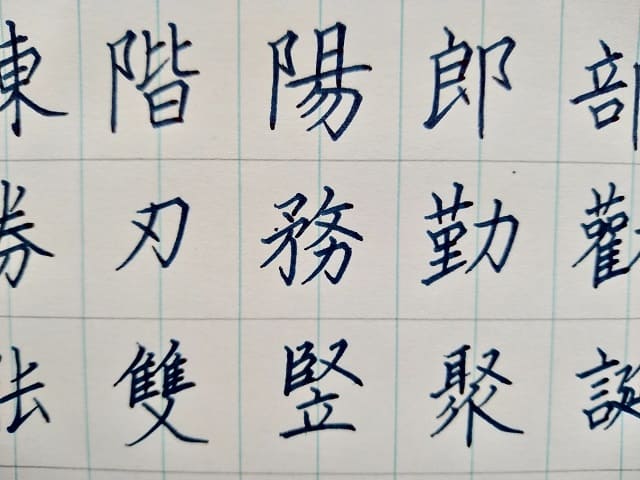 陳階陽郎部
勝刃務勤勸
雙豎聚誕